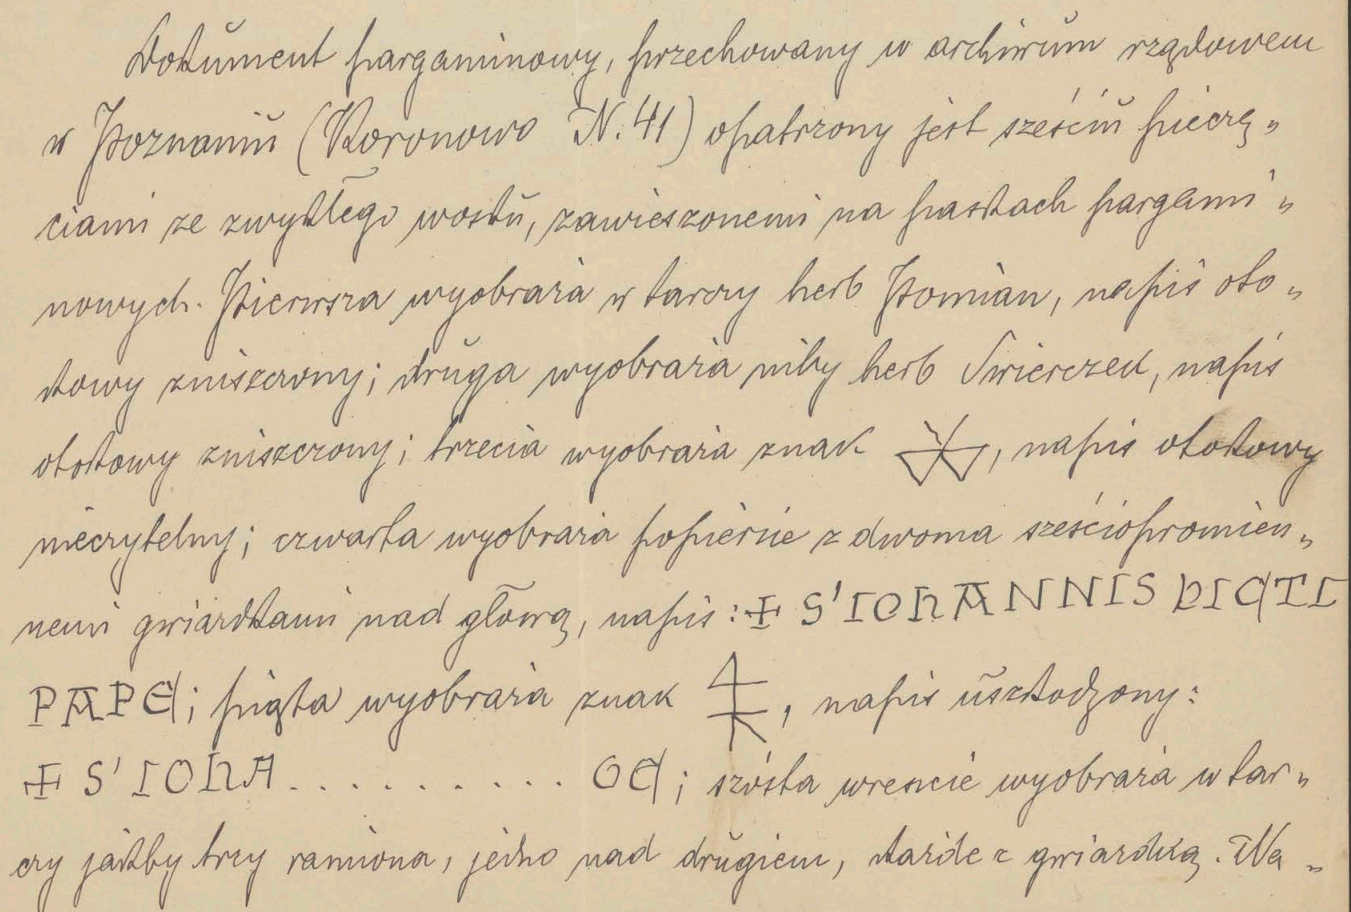 Dokument pargaminowy, przechowany w archiwum rządowem
w Poznaniu (Koronowo N. 41) opatrzony jest sześciu pieczę„
ciami ze zwykłego wosku, zawieszonemi na paskach pargami„
nowych. Pierwsza wyobraża w tarczy herb Pomian, napis oto„
kowy zniszczony; druga wyobraża niby herb Świerczek, napis
otokowy zniszczony; trzecia wyobraża znak , napis otokowy
nieczytelny; czwarta wyobraża popiersie z dwoma sześciopromien„
nemi gwiazdkami nad głową, napis: ✠ S' IOHANNIS DICTI
PAPE; piąta wyobraża znak , napis uszkodzony:
✠ S' IOHA.......... GE; szósta wreszcie wyobraża w tar„
czy jakby trzy ramiona, jedno nad drugiem, każde z gwiazdką. Na„